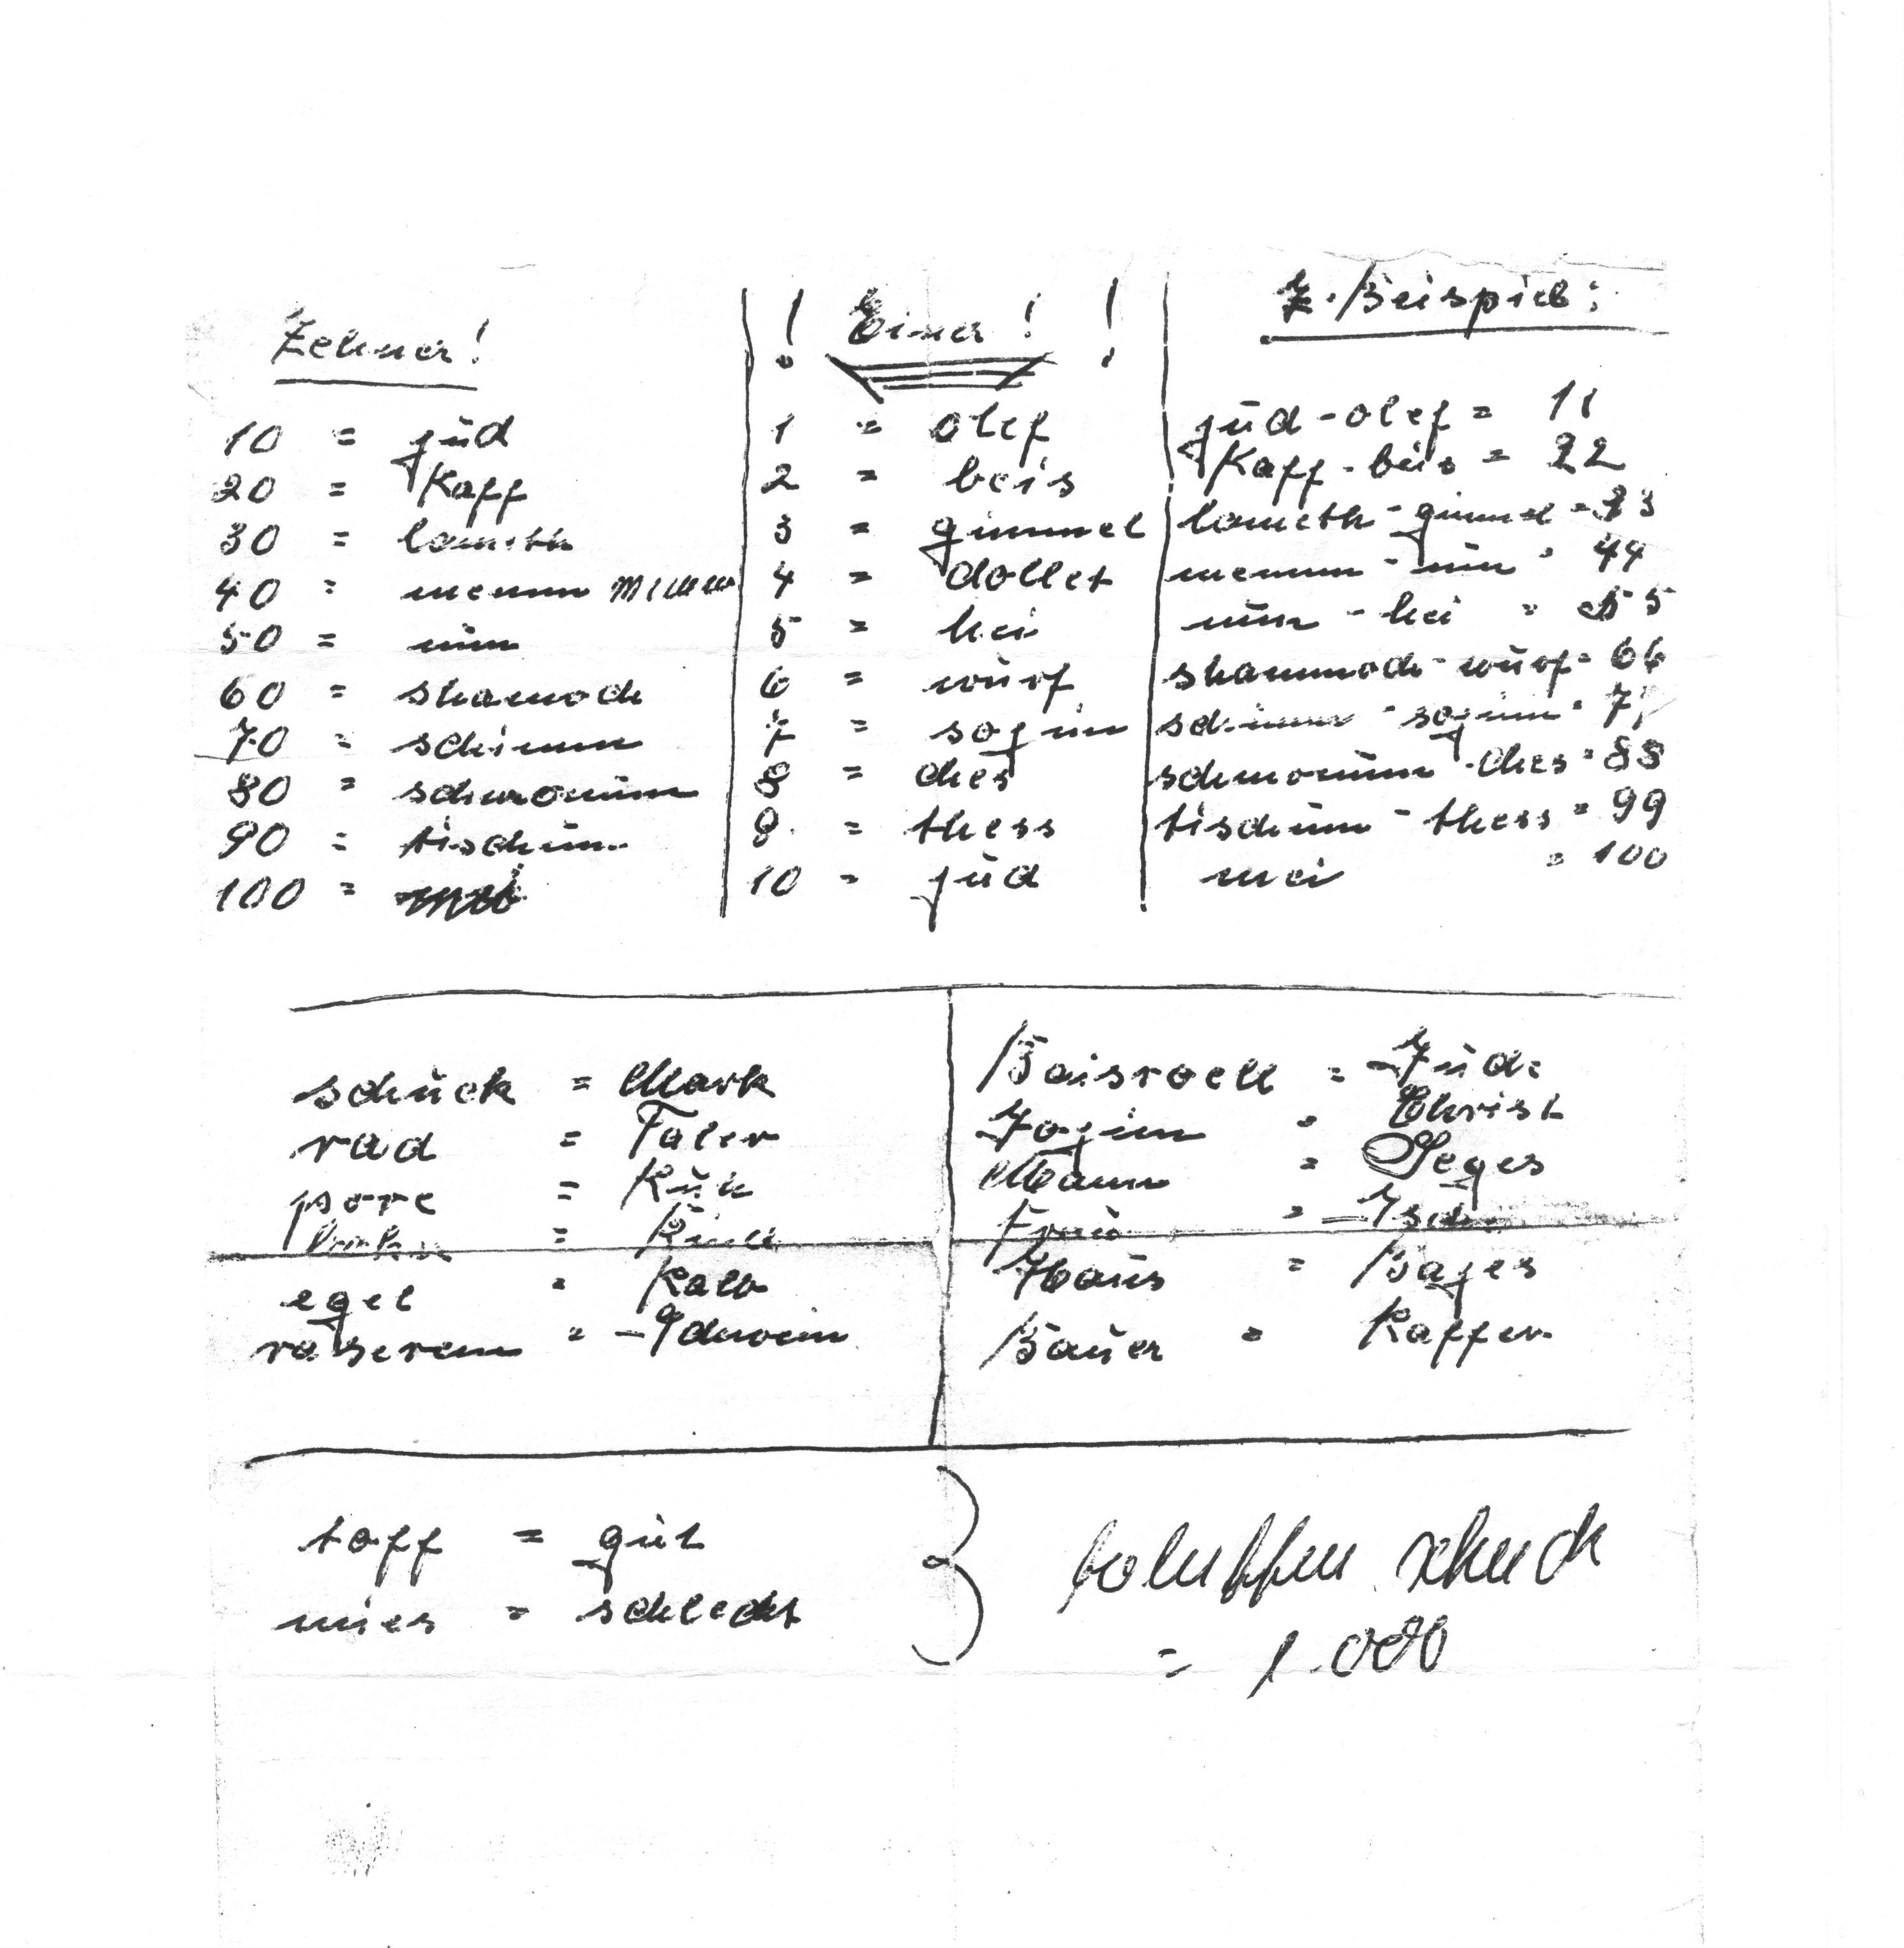 Zehner! ! Einer! ! Z. Beispiel:
10 = jud 1 = olef jud-olef = 11
20 = Kaff 2 = beis Kaff-beis = 22
30 = lometh 3 = gimmel lometh-gimmel = 33
40 = memm 4 = dollet memm - 44
50 = nun 5 = hei nun-hei = 55
60 = shamoch 6 = wurf shammoch-wurf = 66
70 = schimm 7 = sojim schimm-sojim = 77
80 = schmonum 8 = ches schmonum-ches = 88
90 = tischum 9. = thess tischum-thess = 99
100 = mei 10 = jud mei = 100
schuck = Mark Baisroell = Jude
rad = Taler Jojim = Christ
pore = Kuh Mann = Peges
= Rind Frau = Ische
egel = Kalb Haus = Bajes
= Schwein Bauer = Kaffer
toff = gut schuck
mies = schlecht = 1.000